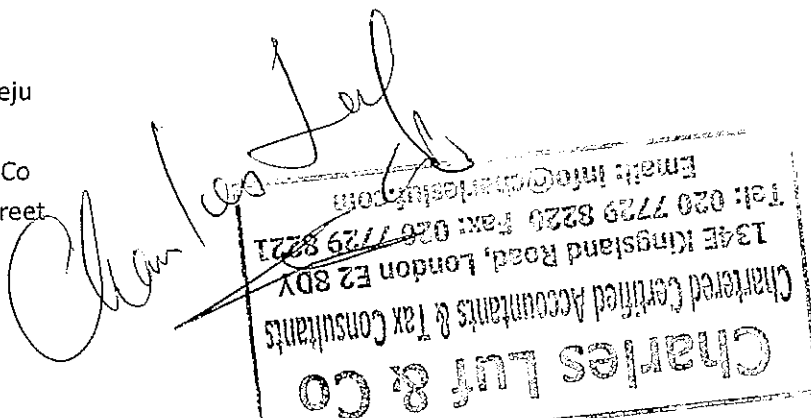 eju
Co
reet
Charles Luf
& Co
Charles Luf & Co
Chartered Certified Accountants & Tax Consultants
134E Kingsland Road, London E2 8DY
Tel: 020 7729 8220 Fax: 020 7729 8221
Email: info@charlesluf.com